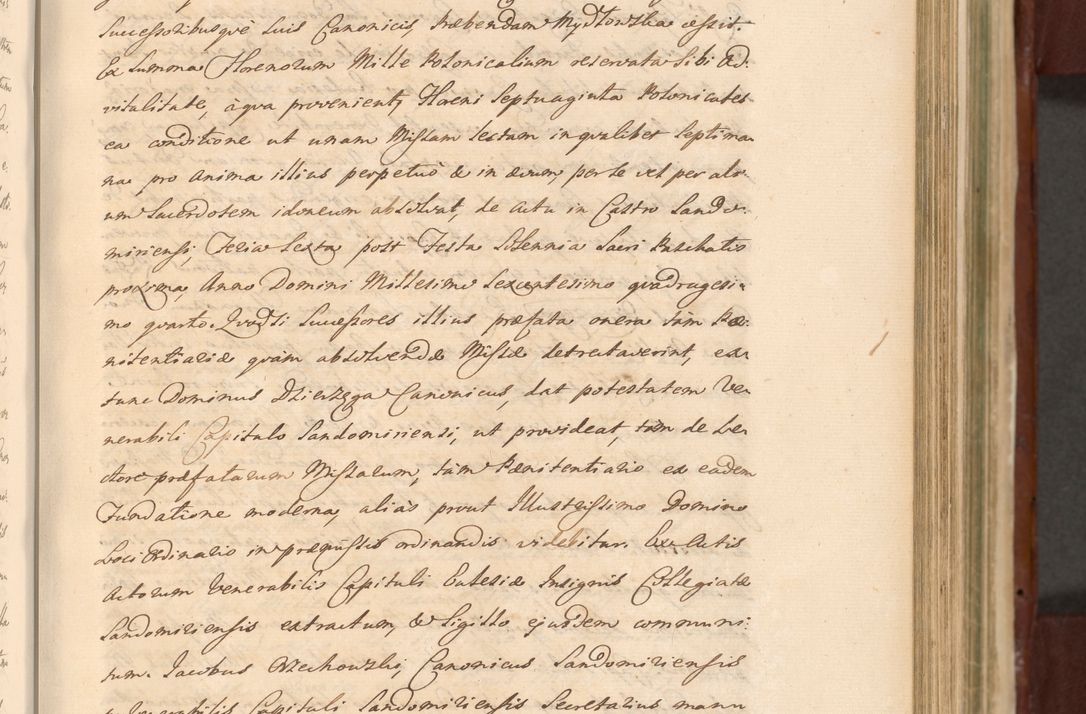 Successoribusqve Suis Canonicis, Præbendam Mydłowska cessit.
Ex Summa Florenorum Mille Polonicalium reservata Sibi ad-
vitalitate, a qva provenient, Floreni Septuaginta Polonicales
ea conditione ut unam Missam lectam in qvaliber Septima-
na pro Anima illius perpetuò & in ævum, per se vel per ali-
um Sacerdotem idoneum absolvat, de Actu in Castro Sando-
miriensi, Feria Sexta post Festa Solennia Sacri Paschatis
proxima, Anno Domini Millesimo Sexcentesimo qvadragesi-
mo qvarto. Qvodsi Successores illius præfata onera tàm Pæ-
nitentiariæ qvàm absolvendæ Missæ detrectaverint, ex-
tunc Dominus Dzierzega Canonicus, dat potestatem Ve-
nerabili Capitulo Sandomiriensi, ut provideat, tàm de Le-
ctore præfatarum Missarum, tàm Pænitentiario ex eadem
Fundatione moderna, aliàs prout Illustrissimo Domino
Loci Ordinario in præmissis ordinandis videbitur. Ex Actis
Actorum Venerabilis Capituli Eclesiæ Insignis Collegiatæ
Sandomiriensis extractum, & Sigillo ejusdem communi-
tum. Jacobus Orzechowski, Canonicus Sandomiriensis
Venerabilis Capituli Sandomiriensis Secretarius manu